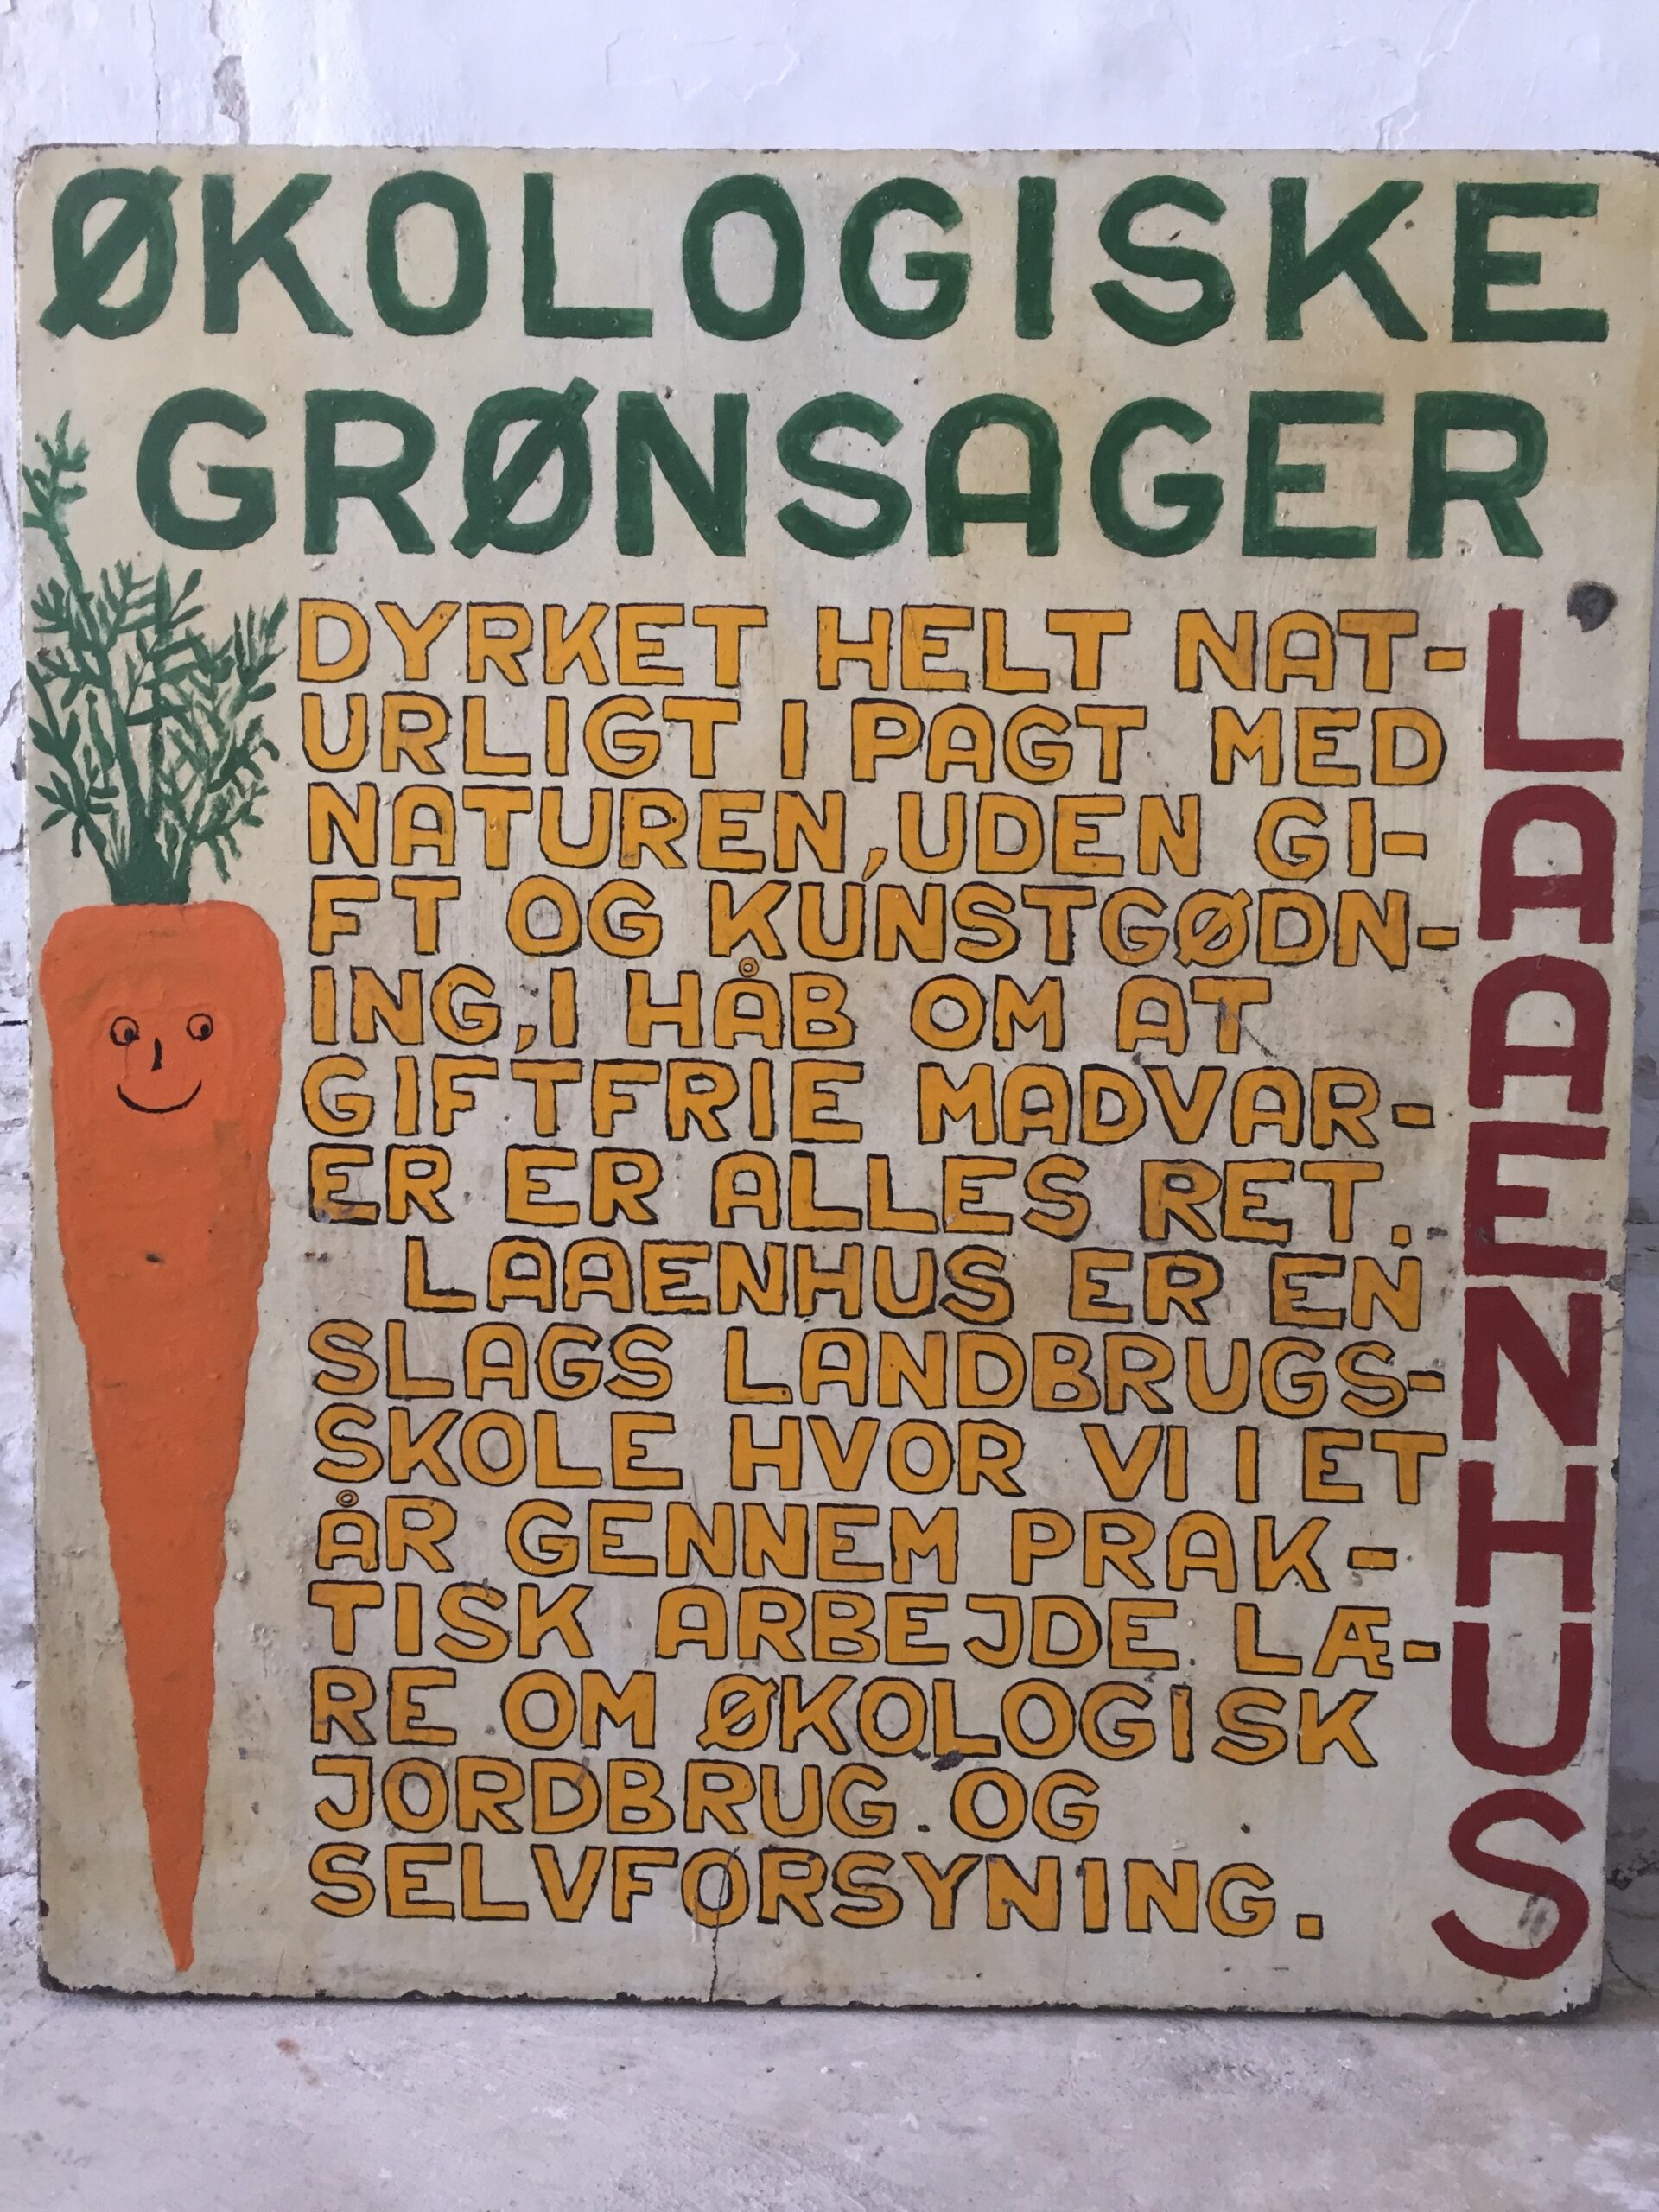 ØKOLOGISKE
GRØNSAGER
DYRKET HELT NAT-
URLIGT I PAGT MED
NATUREN, UDEN GI-
FT OG KUNSTGØDN-
ING, I HÅB OM AT
GIFTFRIE MADVAR-
ER ER ALLES RET.
LAAENHUS ER EN
SLAGS LANDBRUGS-
SKOLE HVOR VI I ET
ÅR GENNEM PRAK-
TISK ARBEJDE LÆ-
RE OM ØKOLOGISK
JORDBRUG OG
SELVFORSYNING.
LAAENHUS